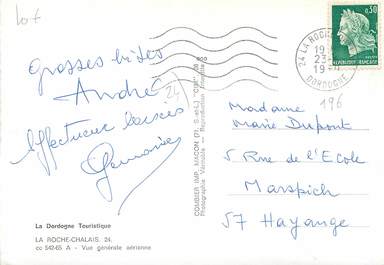 lot
Grosses bises
André
24
Affectueux baisers
Germaine
La Dordogne Touristique
LA ROCHE-CHALAIS. 24.
cc 542-65 A - Vue générale aérienne
COMBIER IMP. MACON (71. S-et-L) "CIM"
Photographie Véritable - Reproduction Interdite
0,30
24 LA ROCHE
DORDOGNE
196
Madame
Marie Dupont
5 Rue de l'Ecole
Marspich
57 Hayange